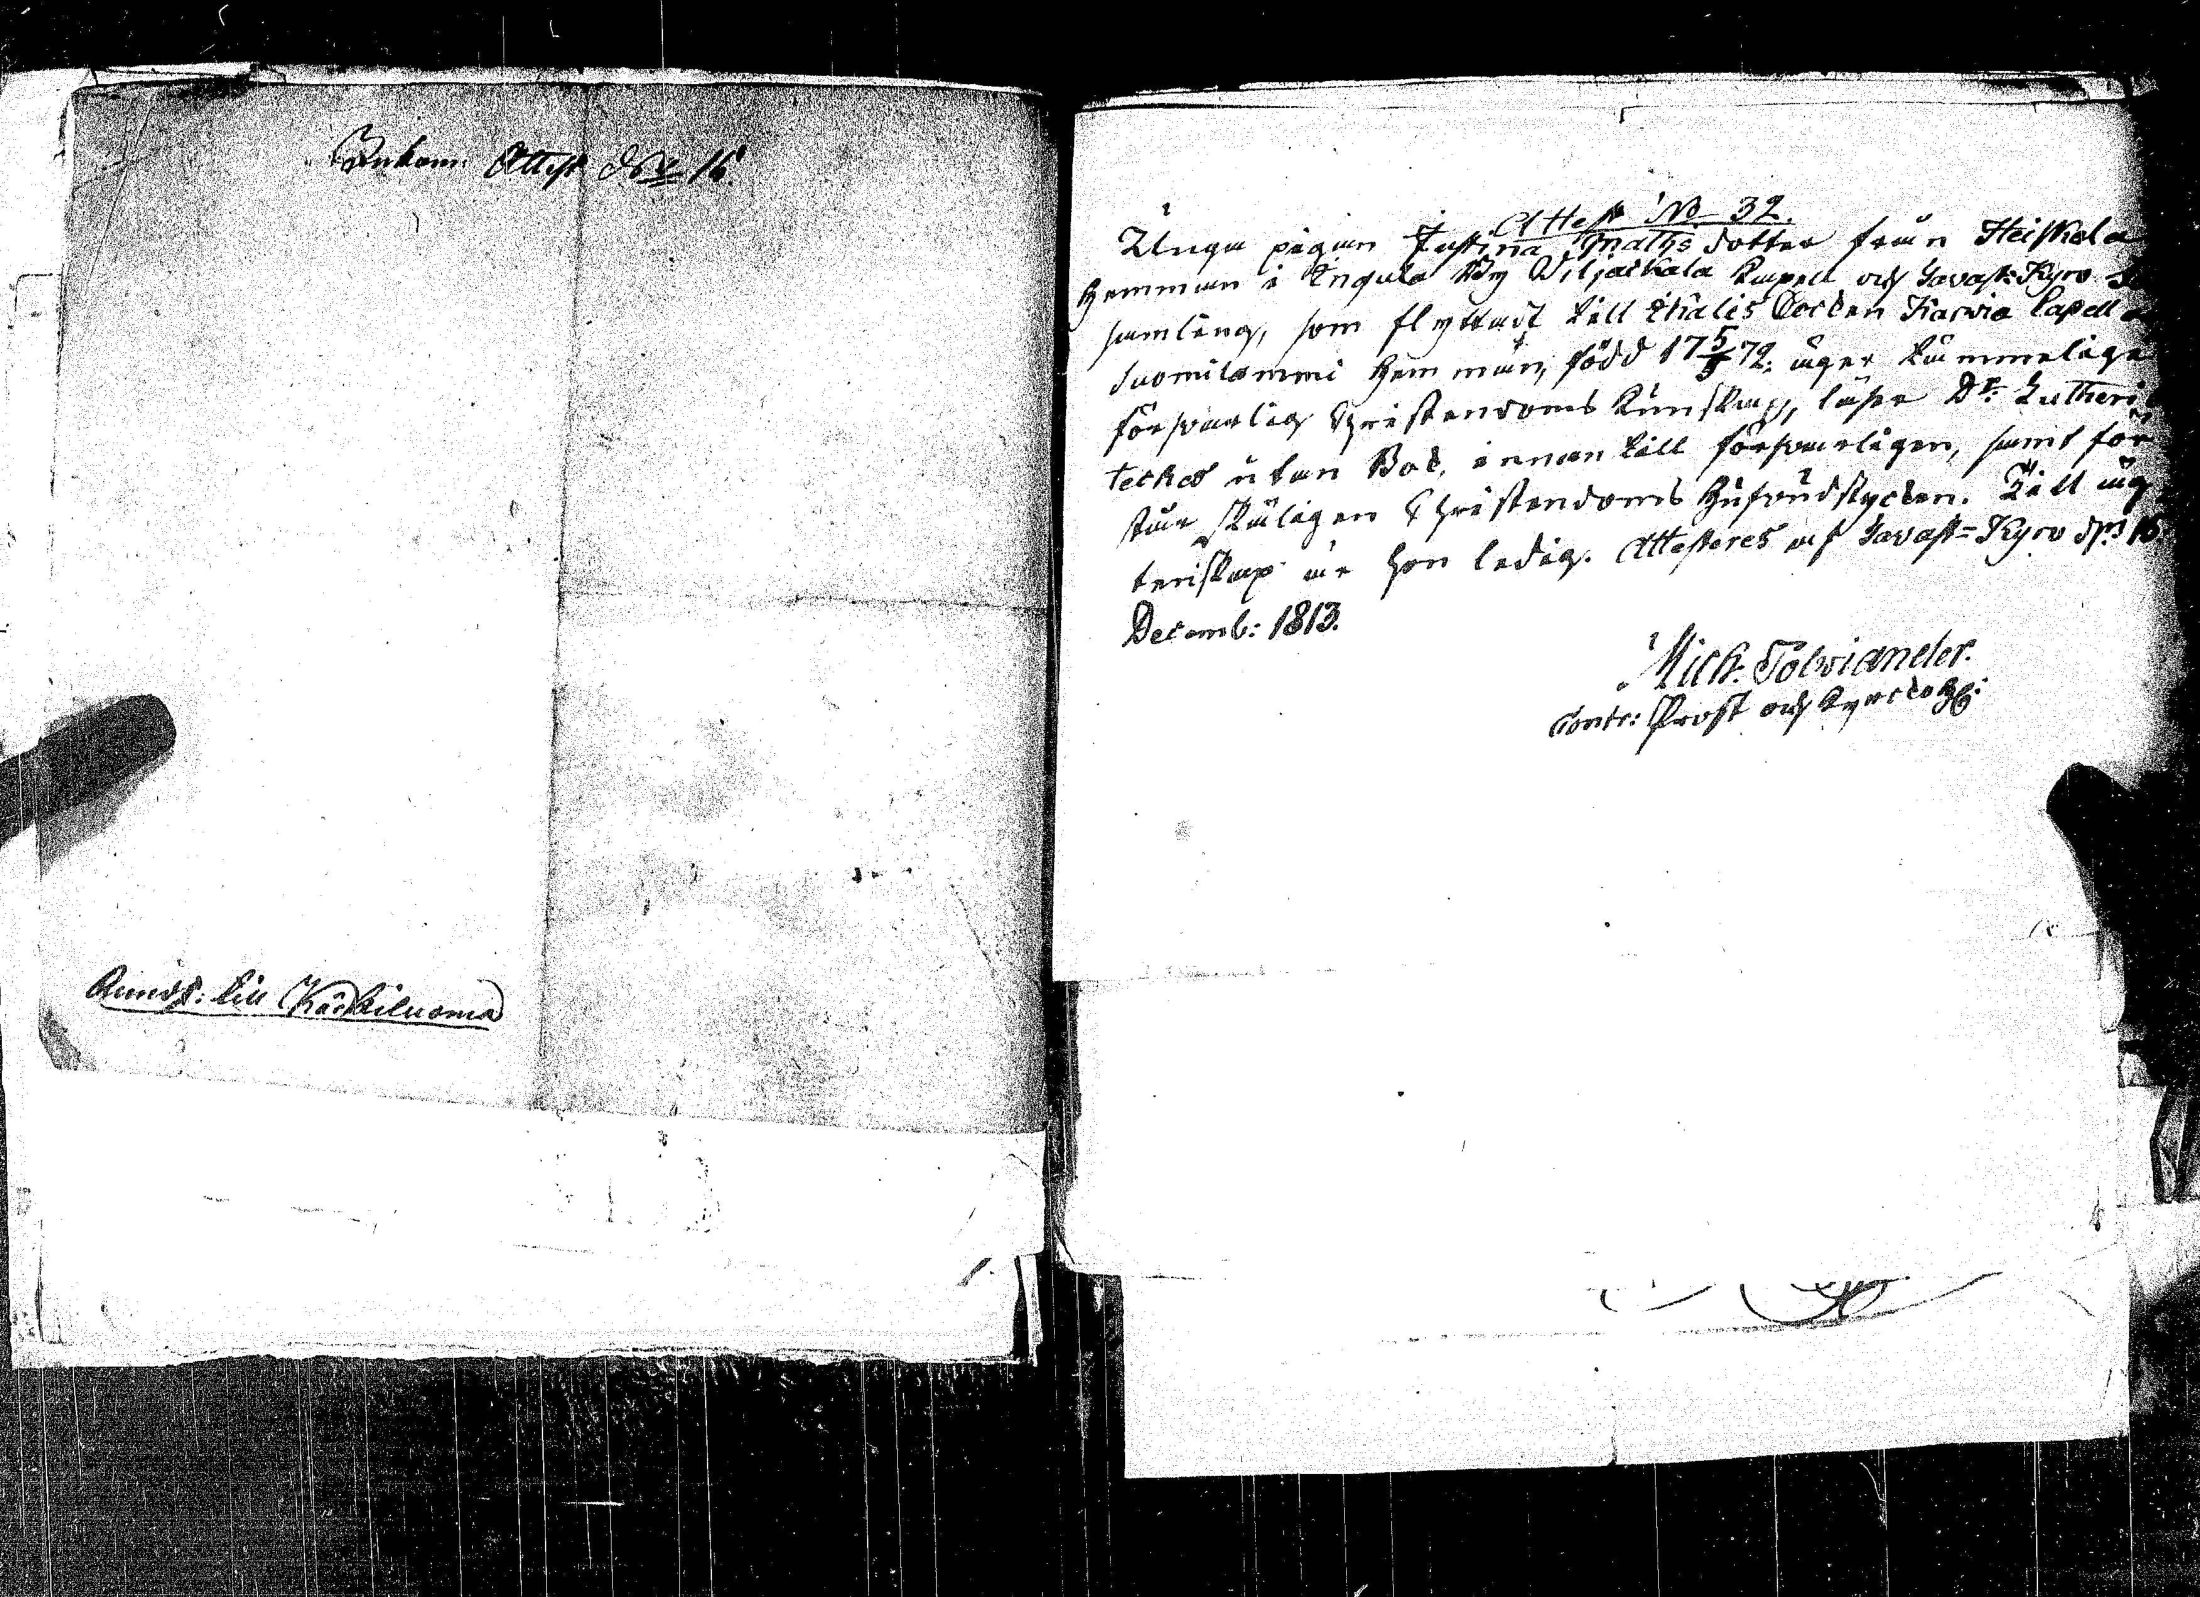 Inkom: Attest No 16.
Annot: till Kärkiluoma
Attest No 32.
Unga pigan Justina Mathsdotter från Heiskala
hemman i Engula By Wiljackala Capell och Tavast-Kyro
samling, som flyttadt till Ikalis Socken Karvia Capell
Suomilammi hemman, född 17 5/5 72. äger kunnelige
försvarlig Christendoms kunskap, läser Dr. Lutheri
teches utan Bok, innan till försvarligen, samt för
står skäligen Christendoms hufvudstycken. Till äg
tenskap är hon ledig. Attesteres af Tavast-Kyro d. 16
Decemb: 1813.
Mich. Tolviander.
Contr: Prost och Kyrckoh: